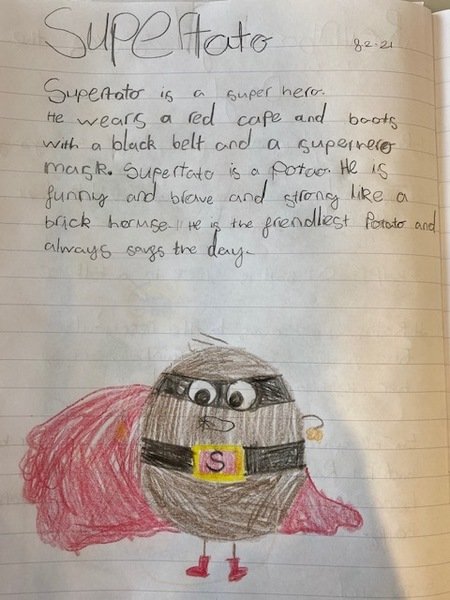 Supertato
8.2.21
Supertato is a super hero.
He wears a red cape and boots
with a black belt and a superhero
mask. Supertato is a potao. He is
funny and brave and strong like a
brick hourse. He is the friendliest Potato and
always says the day.
S